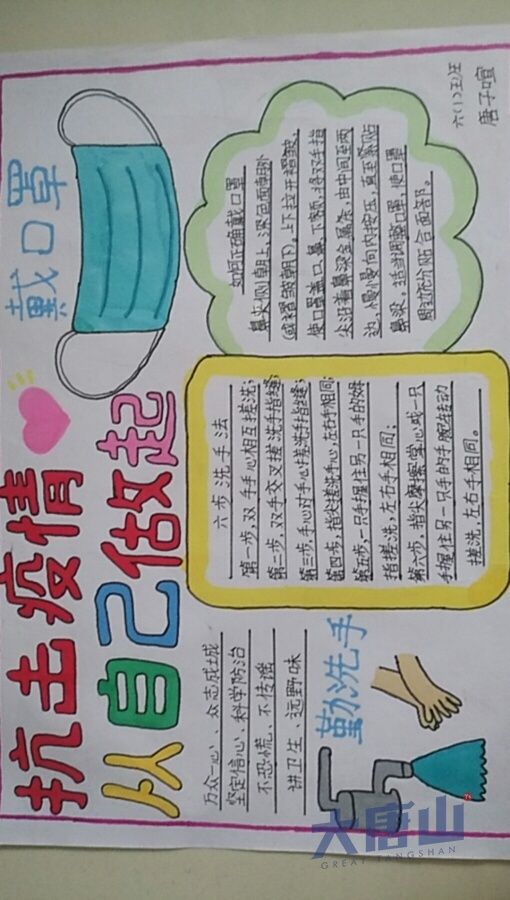 抗击疫情
从自己做起
戴口罩
六(1)班
唐子喧
如何正确戴口罩
鼻夹侧朝上,深色面朝外
(或褶皱朝下)。上下拉开褶皱,
使口罩盖口、鼻、下颏,将双手指
尖沿着鼻梁金属条,由中间至两
边,慢慢向内按压,直至紧贴
鼻梁,适当调整口罩,使口罩
周边充分贴合面部。
六步洗手法
第一步,双手手心相互搓洗;
第一步,双手交叉搓洗手指缝;
第三步,手心对手心搓洗手指缝;
第四步,指尖搓洗手心,左右手相同;
第五步,一只手握住另一只手的拇
指搓洗,左右手相同;
第六步,指尖摩擦掌心或一只
手握住另一只手的手腕转动
搓洗,左右手相同。
万众一心、众志成城
坚定信心、科学防治
不恐慌、不传谣
讲卫生、远野味
勤洗手
大唐山
GREAT TANGSHAN